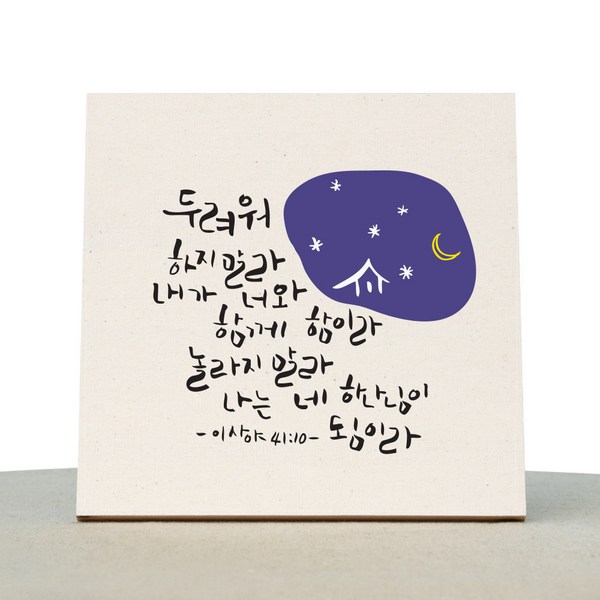 두려워
하지말라
내가 너와
함께 함이라
놀라지 말라
나는 네 하나님이
됨이라
-이사야 41:10-